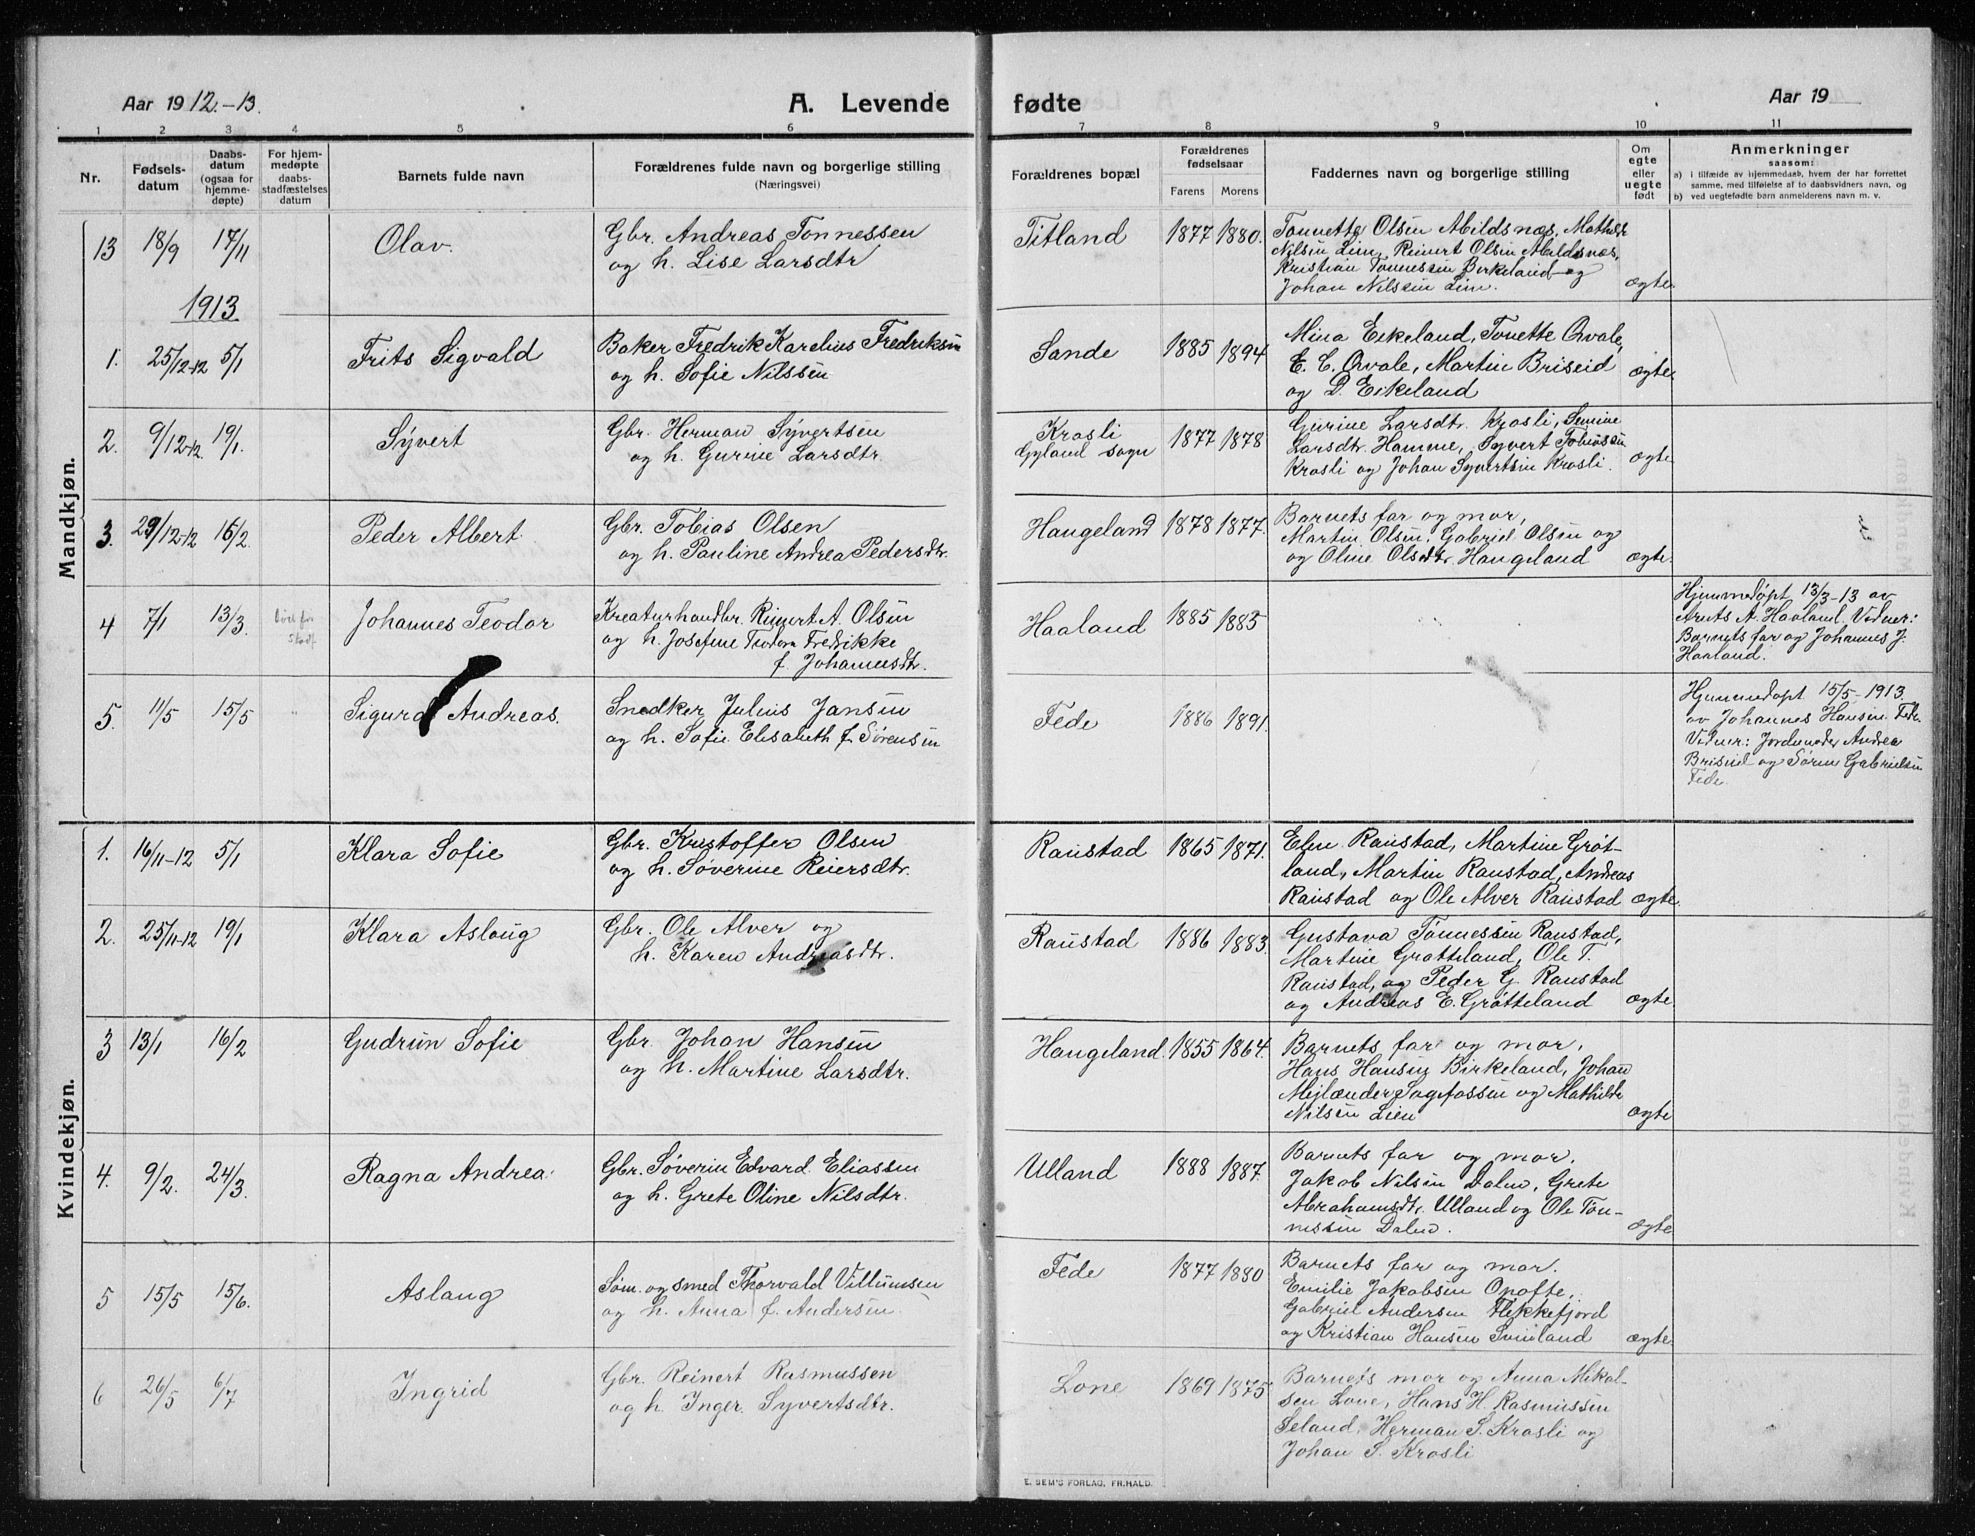 Aar 1912.-13.
A. Levende
fødte
Aar 19
1 2 3 4 5 6 7 8 9 10 11
Nr.
Fødsels-
datum
Daabs-
datum
(ogsaa for
hjemme-
døpte)
For hjem-
medøpte
daabs-
stadfæstelses
datum
Barnets fulde navn
Forældrenes fulde navn og borgerlige stilling
(Næringsvei)
Forældrenes bopæl
Forældrenes
fødselsaar
Farens Morens
Faddernes navn og borgerlige stilling
Om
egte
eller
uegte
født
Anmerkninger
saasom:
a) i tilfælde av hjemmedaab, hvem der har forrettet
samme, med tilføielse af to daabsvidners navn, og
b) ved uegtefødte barn anmelderens navn m. v.
Mandkjøn.
13 18/9 17/11 Olav.
Gbr. Andreas Tønnessen
og h. Lise Larsdtr
Titland 1877 1880.
Tonnette Olsen Abildsnæs, Mathilde
Nilsen Lien, Reinert Olsen Abildsnæs,
Kristian Tønnessen Birkeland og
Johan Nilsen Lien.
ægte
1913
1. 25/12-12 5/1 Frits Sigvald
Baker Fredrik Karelius Fredriksen
og h. Sofie Nilssen
Sande 1885 1894
Mina Eikeland, Tonette Qvale,
E. C. Qvale, Martin Briseid
og P. Eikeland
ægte
2. 9/12-12. 19/1. Sÿvert
Gbr. Herman Sÿvertsen
og h. Gurine Larsdtr.
Krosli
Gyland sogn
1877 1878
Gurine Larsdtr. Krosli, Semine
Larsdtr. Hamme, Syvert Tobiassen
Krosli og Johan Syvertsen Krosli.
ægte
3. 29/12-12 16/2. Peder Albert
Gbr. Tobias Olsen
og h. Pauline Andrea Pedersdtr.
Haugeland 1878 1877.
Barnets far og mor,
Martin Olsen, Gabriel Olsen og
og Oline Olsdtr. Haugeland
ægte.
4 7/1 13/3. Død før
Stadf. Johannes Teodor
Kreaturhandler Reinert A. Olsen
og h. Josefine Teodora Fredrikke
f. Johannesdtr.
Haaland 1885 1885
Hjemmedøpt 13/3-13 av
Arnts A. Haaland. Vidner:
Barnets far og Johannes J.
Haaland.
5. 11/5 15/5 Sigurd Andreas.
Snedker Julius Jansen
og h. Sofie Elisabeth f. Sørensen
Fede 1886 1891.
Hjemmedøpt 15/5-1913
av Johannes Hansen Fede
Vidner: Jordmoder Andrea
Briseid og Søren Gabrielsen
Fede
Kvindekjøn.
1. 16/11-12 5/1 Klara Sofie
Gbr. Kristoffer Olsen
og h. Søverine Reiersdtr.
Raustad 1865 1871.
Elen Raustad, Martine Grøt-
land, Martin Raustad, Andreas
Raustad og Ole Alver Raustad ægte.
2. 25/11-12 19/1 Klara Aslaug
Gbr. Ole Alver og
h. Karen Andreasdtr.
Raustad 1886 1883.
Gustava Tønnessen Raustad,
Martine Grøtteland, Ole T.
Raustad, og Peder G. Raustad
og Andreas E. Grøtteland
ægte.
3 13/1 16/2 Gudrun Sofie
Gbr. Johan Hansen
og h. Martine Larsdtr.
Haugeland. 1855 1864.
Barnets far og mor,
Hans Hansen Birkeland, Johan
Mejlænder Sagefossen og Mathilde
Nilsen Lien
ægte
4. 9/2. 24/3. Ragna Andrea
Gbr. Søverin Edvard Eliassen
og h. Grete Oline Nilsdtr.
Ulland 1888 1887.
Barnets far og mor.
Jakob Nilsen Dalen, Grete
Abrahamsdtr. Ulland og Ole Tøn-
nessen Dalen.
ægte
5 15/5 15/6. Aslaug
Søm. og smed Thorvald Villumsen
og h. Anna f. Andersen.
Fede 1877 1880
Barnets far og mor.
Emilie Jakobsen Opofte,
Gabriel Andersen Flekkefjord
og Kristian Hansen Svinland
ægte
6 26/5 6/7 Ingrid
Gbr. Reinert Rasmussen
og h. Inger Syvertsdtr.
Lone 1869 1875
Barnets mor og Anna Mikal-
sen Lone, Hans H. Rasmussen
Seland, Herman S. Krosli og
Johan S. Krosli
E. SEM'S FORLAG, FR.HALD.